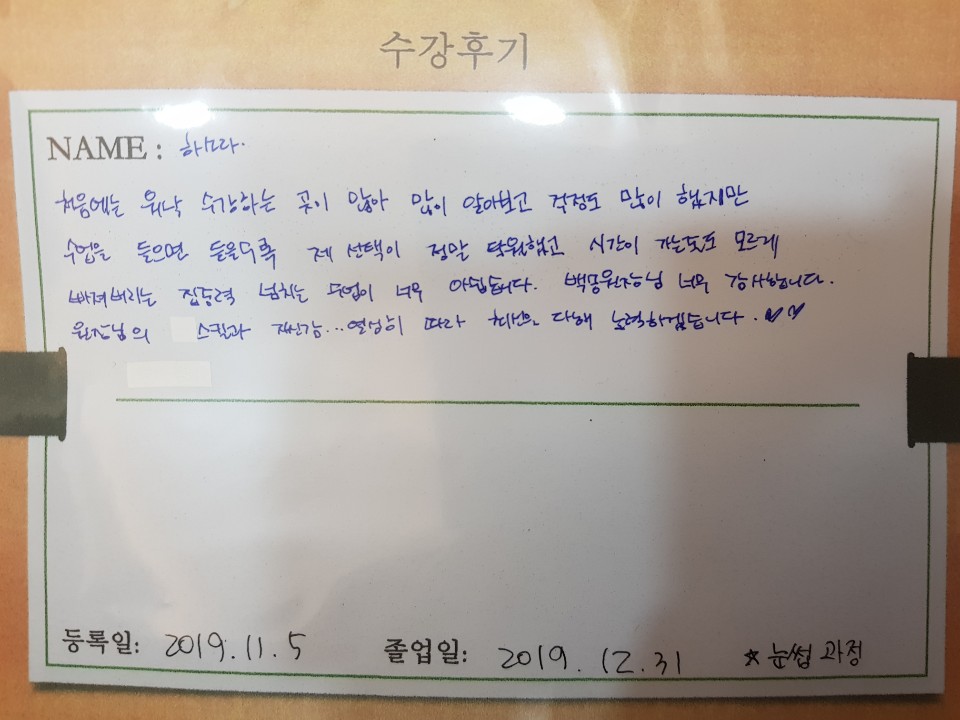 수강후기
NAME : 하미라.
처음에는 워낙 수강하는 곳이 많아 많이 알아보고 걱정도 많이 했지만
수업을 들으면 들을수록 제 선택이 정말 탁월했고 시간이 가는줄도 모르게
빠져버리는 집중력 넘치는 수업이 너무 아쉽습니다. 원장님 너무 감사합니다.
원장님의 스킬과 자신감... 열심히 따라 최선을 다해 노력하겠습니다. ♥♥
등록일: 2019.11.5 졸업일: 2019.12.31 ☆눈썹 과정